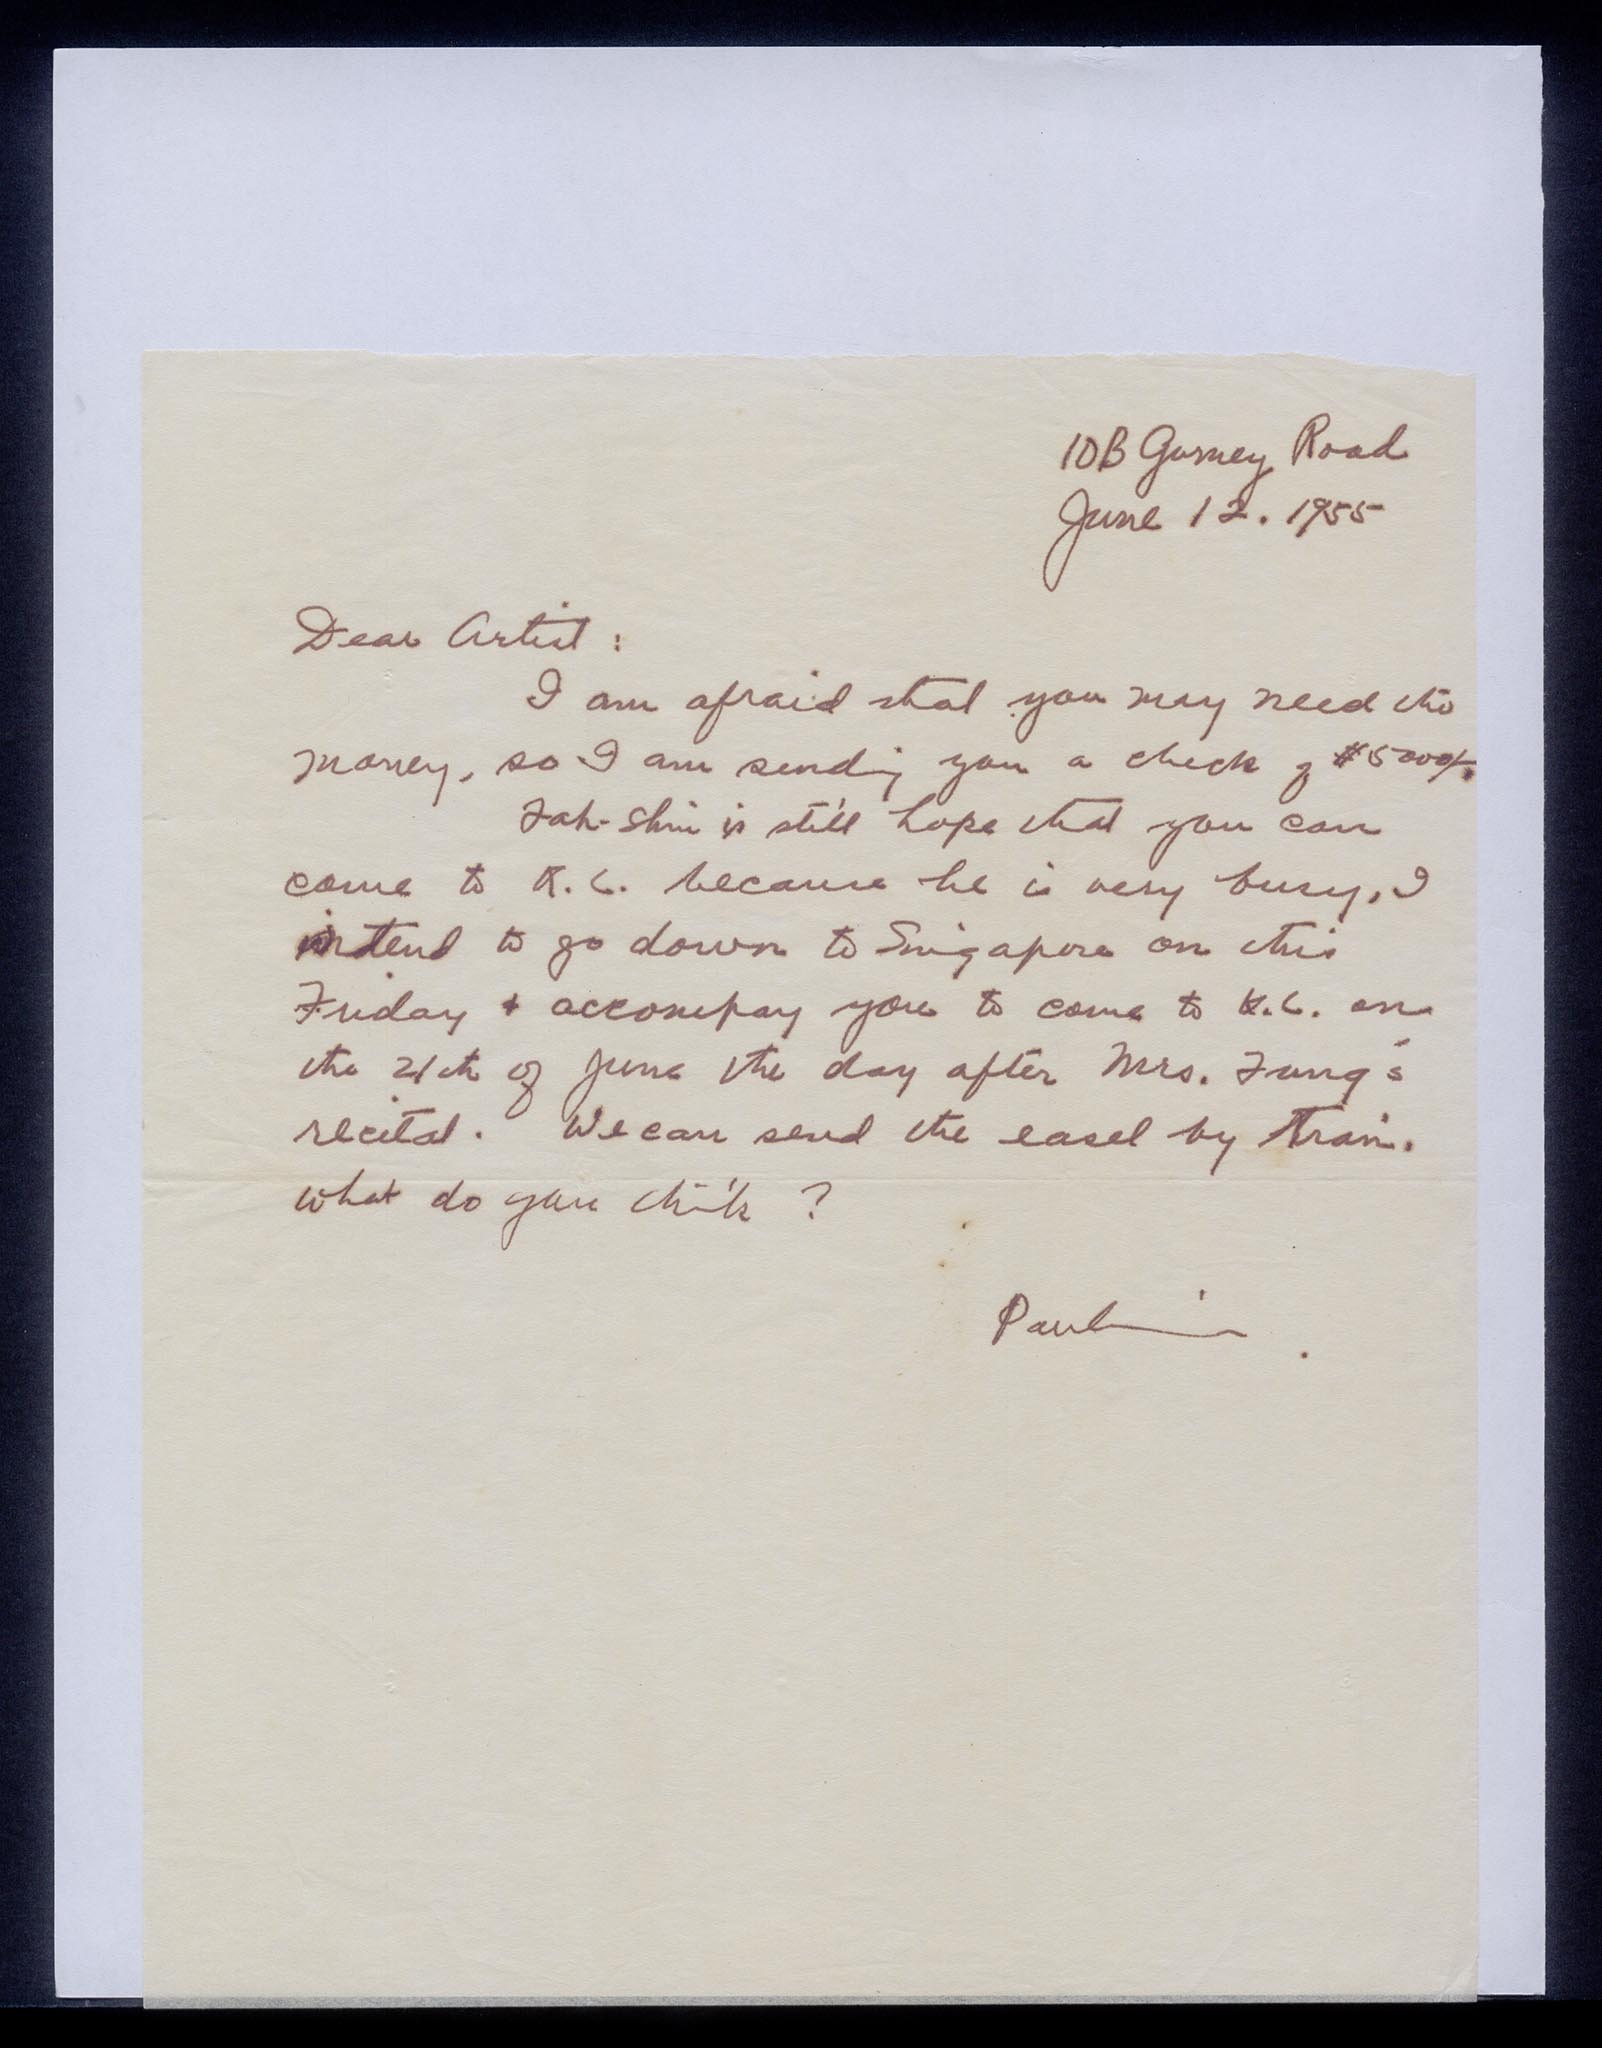 10B Gurney Road
June 12. 1955
Dear Artist:
I am afraid that you may need the
money, so I am sending you a check of $5000/.
Fah-Shin is still hope that you can
come to K.L. because he is very busy, I
intend to go down to Singapore on this
Friday + accompay you to come to K.L. on
the 21th of June the day after Mrs. Fung's
recital. We can send the easel by train.
what do you think ?
Pauline.